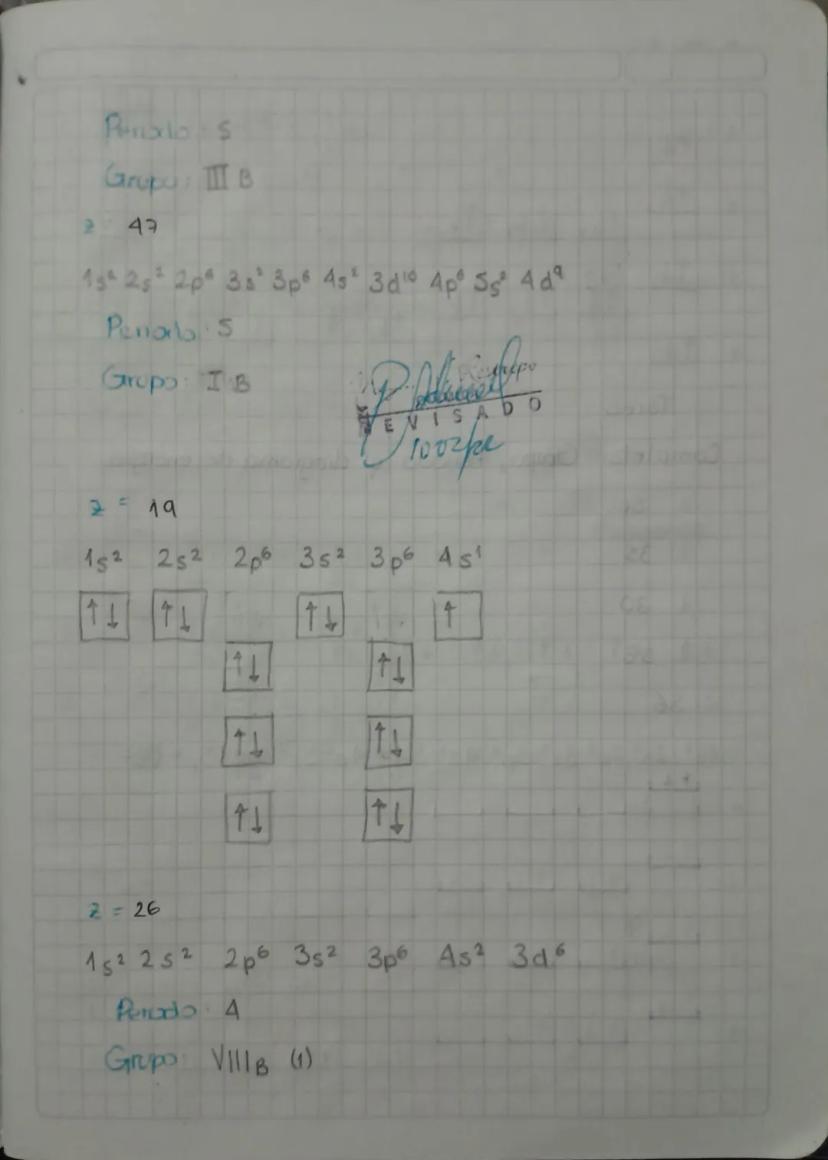 Periodo: 5
Grupo: III B
z 47
1s² 2s² 2p⁶ 3s² 3p⁶ 4s² 3d¹⁰ 4p⁶ 5s² 4d⁹
Periodo: 5
Grupo: I B
EVISADO
z = 19
1s² 2s² 2p⁶ 3s² 3p⁶ 4s¹
↑↓ ↑↓ ↑↓ ↑
↑↓ ↑↓
↑↓ ↑↓
↑↓ ↑↓
z = 26
1s² 2s² 2p⁶ 3s² 3p⁶ 4s² 3d⁶
Periodo: 4
Grupo: VIII B (1)